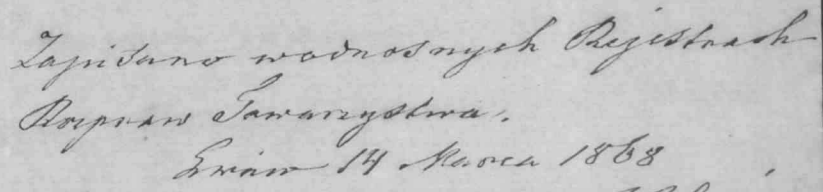 Zapisano wodnosnych Rejestrach
Rozpraw Towarzystwa.
Lwów 14 Marca 1868